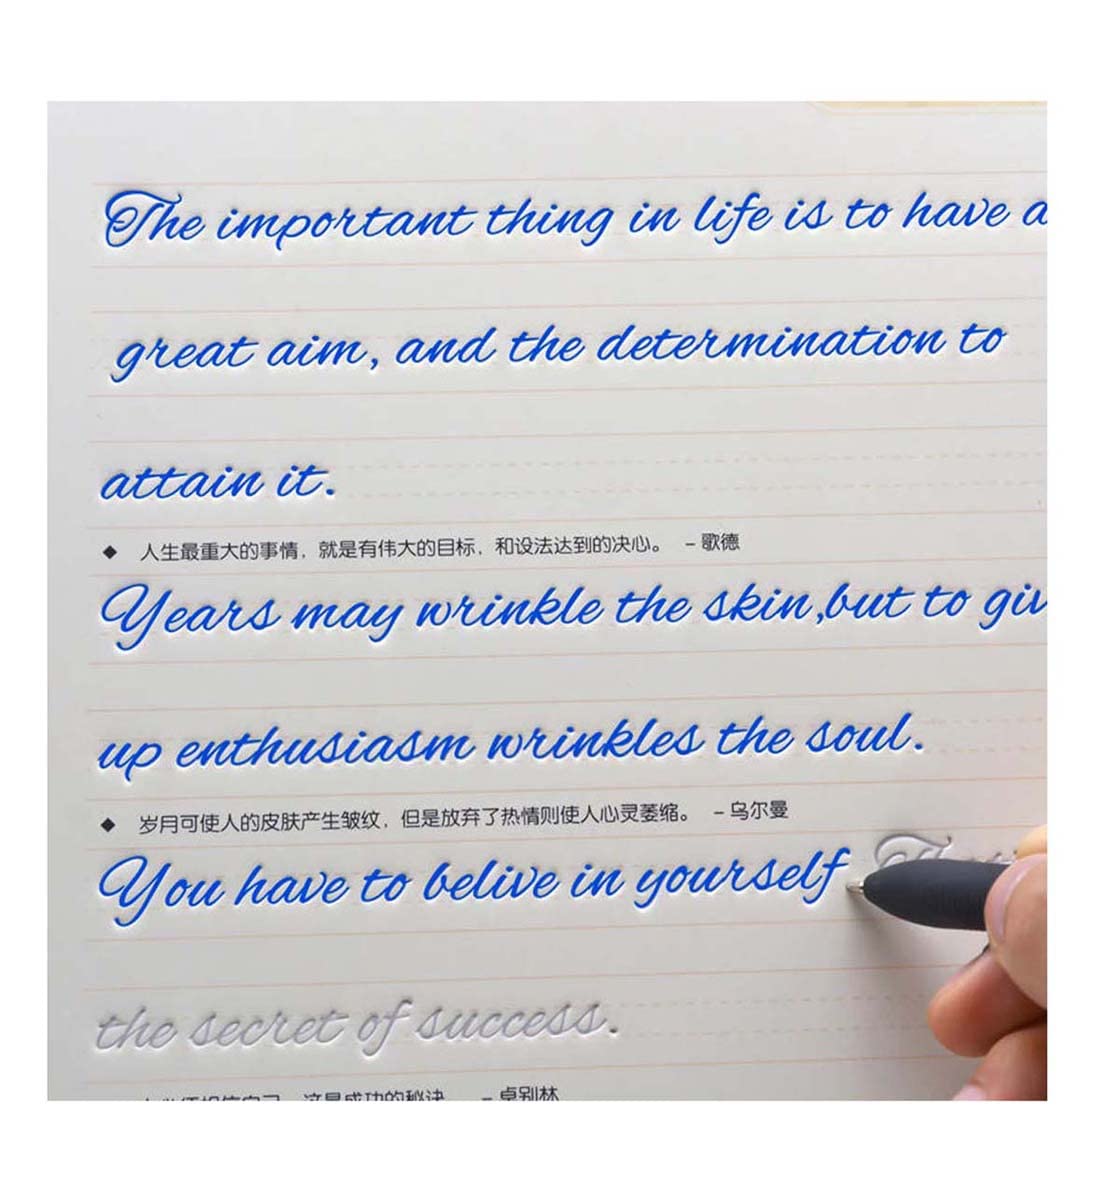 The important thing in life is to have a
great aim, and the determination to
attain it.
◆ 人生最重大的事情，就是有伟大的目标，和设法达到的决心。 – 歌德
Years may wrinkle the skin,but to giv
up enthusiasm wrinkles the soul.
◆ 岁月可使人的皮肤产生皱纹，但是放弃了热情则使人心灵萎缩。 – 乌尔曼
You have to belive in yourself
the secret of success.
这是成功的秘诀 – 卓别林